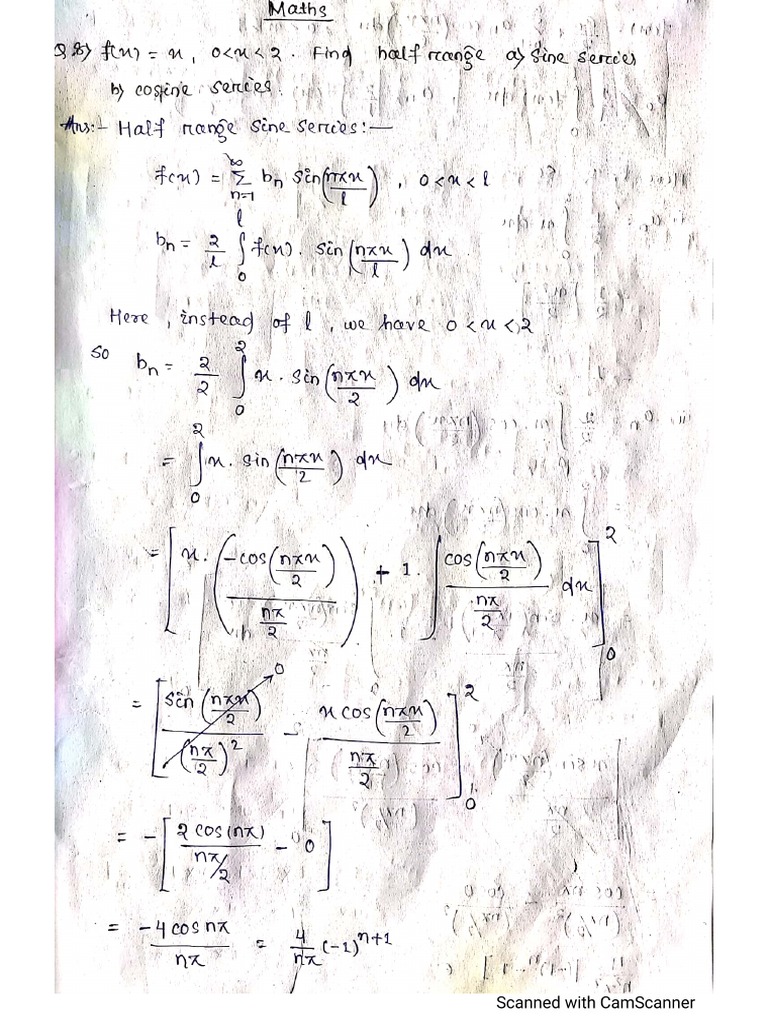 Maths
Q 8) f(x) = x, 0<x<2. Find half range a) Sine series
b) cosine series.
Ans:- Half range sine series:-
f(x) = ∑_{n=1}^{∞} b_n sin(nπx/l), 0<x<l
b_n = 2/l ∫_0^l f(x). sin(nπx/l) dx.
Here, instead of l, we have 0<x<2
So b_n = 2/2 ∫_0^2 x. sin(nπx/2) dx
= ∫_0^2 x. sin(nπx/2) dx
= [x. (-cos(nπx/2) / (nπ/2)) + 1. ∫ cos(nπx/2) / (nπ/2) dx]_0^2
= [sin(nπx/2) / (nπ/2)^2 → 0 - x cos(nπx/2) / (nπ/2)]_0^2
= -[2 cos(nπ) / (nπ/2) - 0]
= -4 cos nπ / nπ = 4/nπ (-1)^{n+1}
Scanned with CamScanner